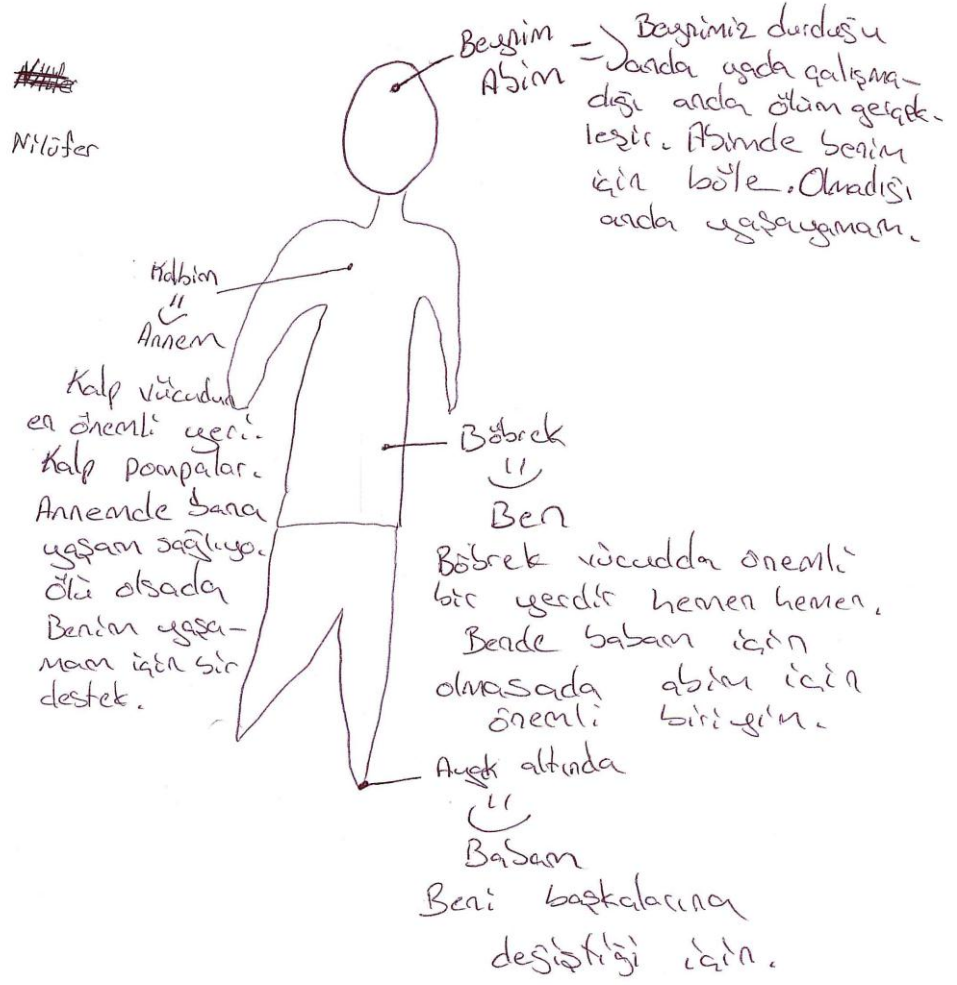 Nilüfer
Beynim
Abim
Beynimiz durduğu
anda yada çalışma-
dığı anda ölüm gerçek-
leşir. Abimde benim
için böle. Olmadığı
anda yaşayamam.
Kalbim
Annem
Kalp vücudun
en önemli yeri.
Kalp pompalar.
Annemde bana
yaşam sağlıyo.
ölü olsada
Benim yaşa-
mam için bir
destek.
Böbrek
Ben
Böbrek vücudda önemli
bir yerdir hemen hemen.
Bende babam için
olmasada abim için
önemli biriyim.
Ayak altında
Babam
Beni başkalarına
değiştiği için.